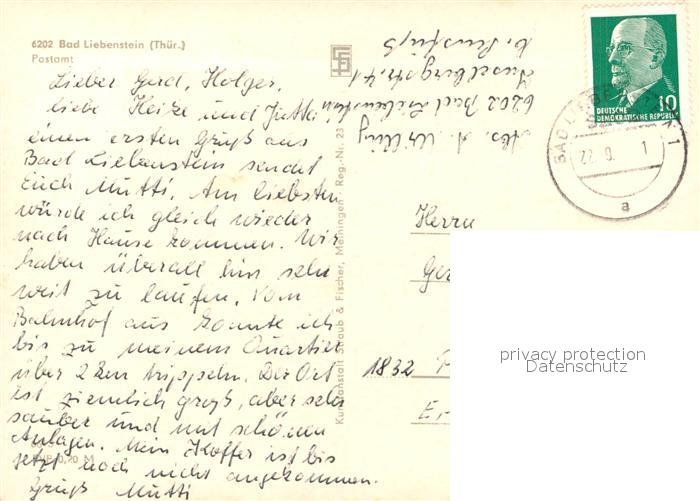 6202 Bad Liebenstein (Thür.)
Postamt
Lieber Gerd, Holger,
liebe Heike und Jutta!
einen ersten Gruß aus
Bad Liebenstein sendet
Euch Mutti. Am liebsten
würde ich gleich wieder
nach Hause kommen. Wir
haben überall hin sehr
weit zu laufen. Vom
Bahnhof aus konnte ich
bis zu meinem Quartier
über 2 km trippeln. Der Ort
ist ziemlich groß, aber sehr
sauber und mit schönen
Anlagen. Mein Koffer ist bis
jetzt noch nicht angekommen.
Gruß Mutti
0,20 M
Kunstanstalt Straub & Fischer, Meiningen · Reg.-Nr. 23
Abs. A.
6202 Bad Liebenstein
Inselbergstr. 41
b.
DEUTSCHE
DEMOKRATISCHE REPUBLIK
10
BAD LIEBENSTEIN 1
22. 9. 1
a
Herrn
Ger
1832
privacy protection
Datenschutz